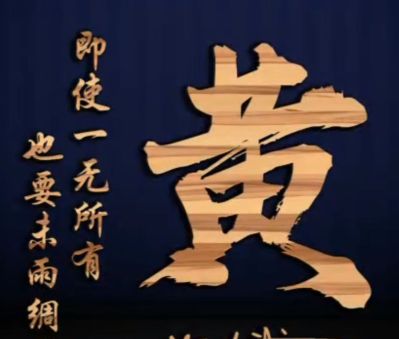 黄
即使一无所有
也要未雨绸